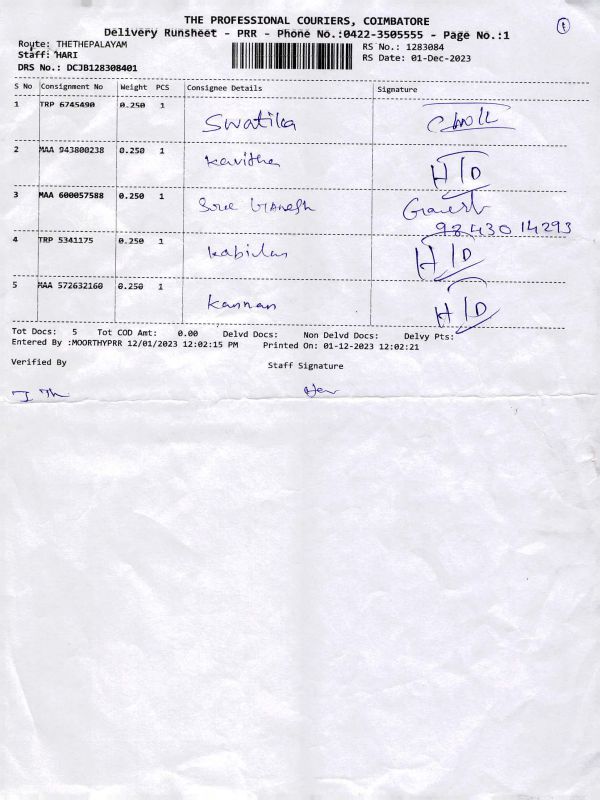 THE PROFESSIONAL COURIERS, COIMBATORE
Delivery Runsheet - PRR - Phone No.:0422-3505555 - Page No.:1
1
Route: THETHEPALAYAM
RS No.: 1283084
Staff: HARI
RS Date: 01-Dec-2023
DRS No.: DCJB128308401
S No Consignment No Weight PCS Consignee Details Signature
1 TRP 6745490 0.250 1 Swatika
2 MAA 943800238 0.250 1 Kavitha H/D
3 MAA 600057588 0.250 1 Sree Ganesh Ganesh
98430 14293
4 TRP 5341175 0.250 1 Kabilan H/D
5 MAA 572632160 0.250 1 Kannan H/D
Tot Docs: 5 Tot COD Amt: 0.00 Delvd Docs: Non Delvd Docs: Delvy Pts:
Entered By :MOORTHYPRR 12/01/2023 12:02:15 PM Printed On: 01-12-2023 12:02:21
Verified By
Staff Signature